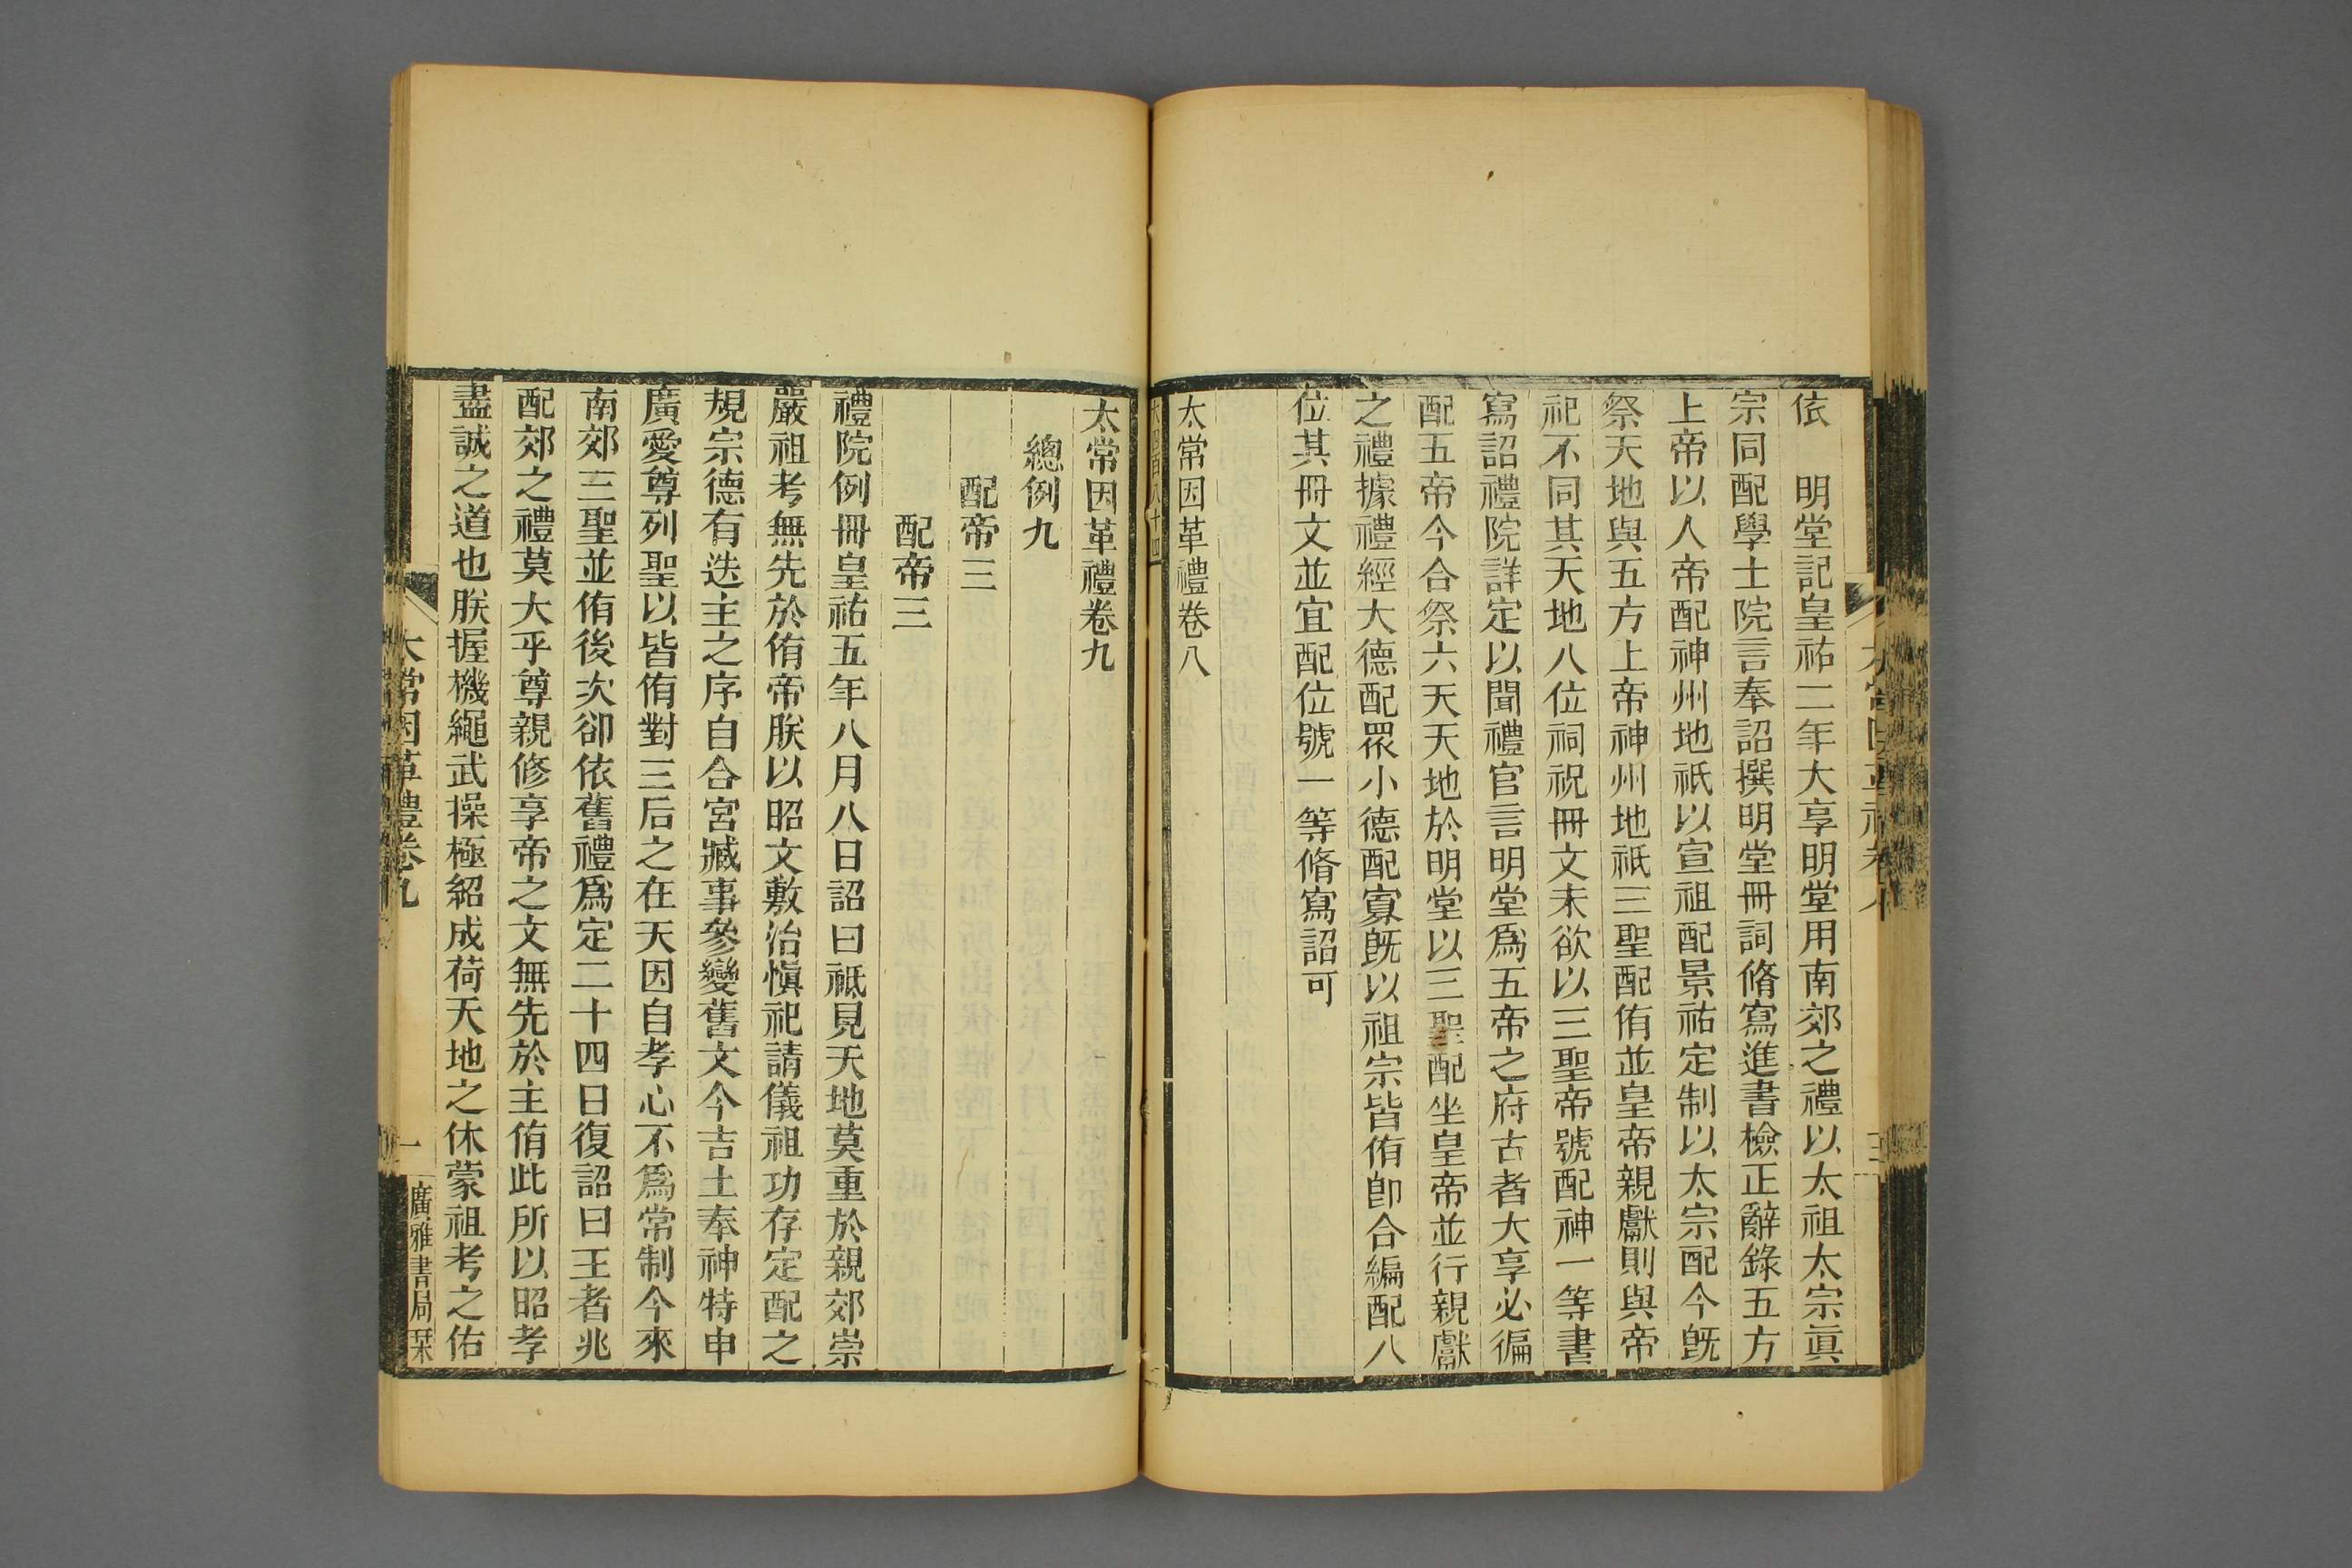 依　明堂記皇祐二年大享明堂用南郊之禮以太祖太宗眞
宗同配學士院言奉詔撰明堂冊詞脩寫進書檢正辭錄五方
上帝以人帝配神州地祇以宣祖配景祐定制以太宗配今旣
祭天地與五方上帝神州地祇三聖配侑並皇帝親獻則與帝
祀不同其天地八位祠祝冊文未欲以三聖帝號配神一等書
寫詔禮院詳定以聞禮官言明堂爲五帝之府古者大享必徧
配五帝今合祭六天天地於明堂以三聖配坐皇帝並行親獻
之禮據禮經大德配眾小德配寡旣以祖宗皆侑卽合編配八
位其冊文並宜配位號一等脩寫詔可
太常因革禮卷八
太常因革禮卷九
總例九
配帝三
配帝三
禮院例冊皇祐五年八月八日詔曰祗見天地莫重於親郊崇
嚴祖考無先於侑帝朕以昭文敷治愼祀請儀祖功存定配之
規宗德有迭主之序自合宮臧事參變舊文今吉土奉神特申
廣愛尊列聖以皆侑對三后之在天因自孝心不爲常制今來
南郊三聖並侑後次卻依舊禮爲定二十四日復詔曰王者兆
配郊之禮莫大乎尊親修享帝之文無先於主侑此所以昭孝
盡誠之道也朕握機繩武操極紹成荷天地之休蒙祖考之佑
太常因革禮卷九
一
廣雅書局栞